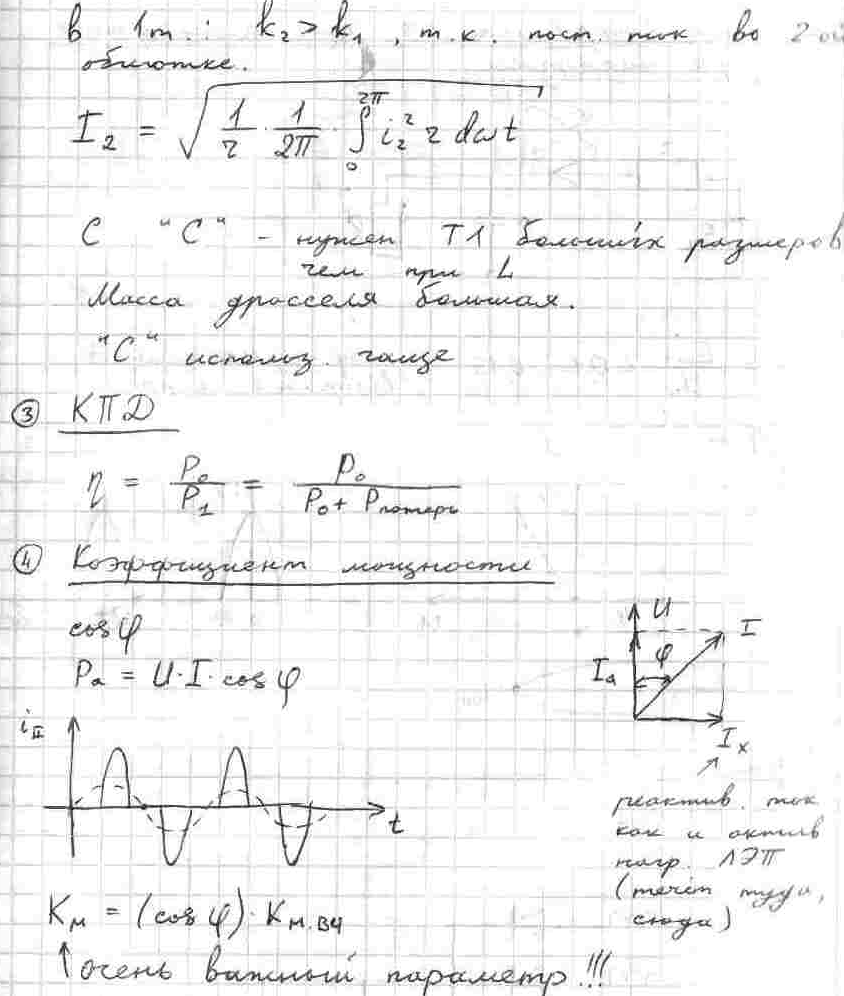 в 1т.: k₂ > k₁, т.к. пост. ток во 2-ой
обмотке.
I₂ = √(1/r · 1/2π · ∫₀^2π i₂² r dωt)
С "С" - нужен Т1 больших размеров
чем при L
Масса дросселя большая.
"С" использ. чаще
③ КПД
η = P₀/P₁ = P₀/(P₀ + Pпотерь)
④ Коэффициент мощности
cos φ
Pₐ = U·I·cos φ
U
I
φ
Iₐ
Iₓ
i_II
t
реактив. ток
как и актив
нагр. ЛЭП
(течёт туда,
сюда)
Kм = (cos φ)·Kм.вч
↑ очень важный параметр!!!